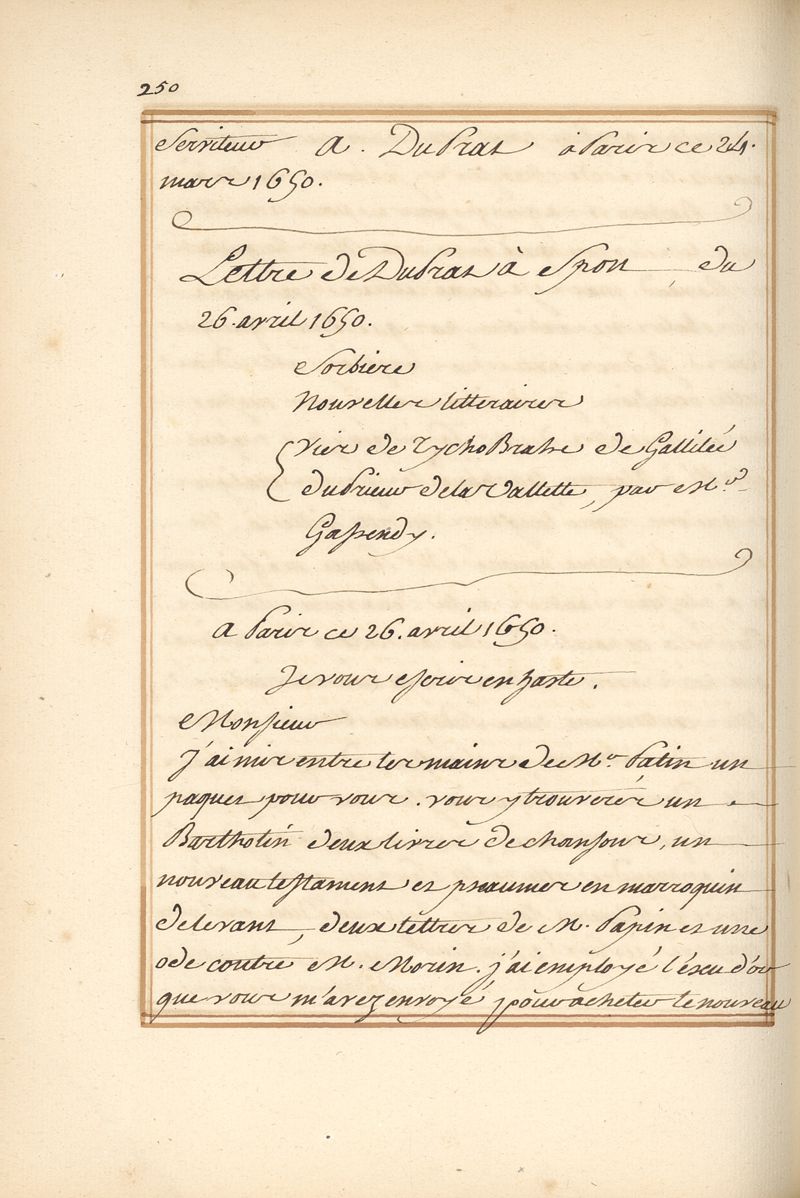 250
Serviteur A. DuPrat à Paris ce 24.
mars 1650.
Lettre de DuPrat à Spon, du
26. avril 1650.
Sorbiere
Nouvelles litteraires
Vies de Tycho Brahe de Gallilée
du Prieur de la Vallette, par Mr.
Gassendy.
A Paris ce 26. avril 1650.
Je vous escris en haste.
Monsieur
J'ai mis entre les mains de Mr. Patin un
paquet pour vous. vous y trouverés un
Bartholin deux livres de chansons, un
nouveau testament et pseaumes en marroquin
de levant, deux lettres de M. Papin et une
ode contre M. Morin. j'ai employé l'éscu d'or
que vous m'avez envoyé pour acheter le nouveau